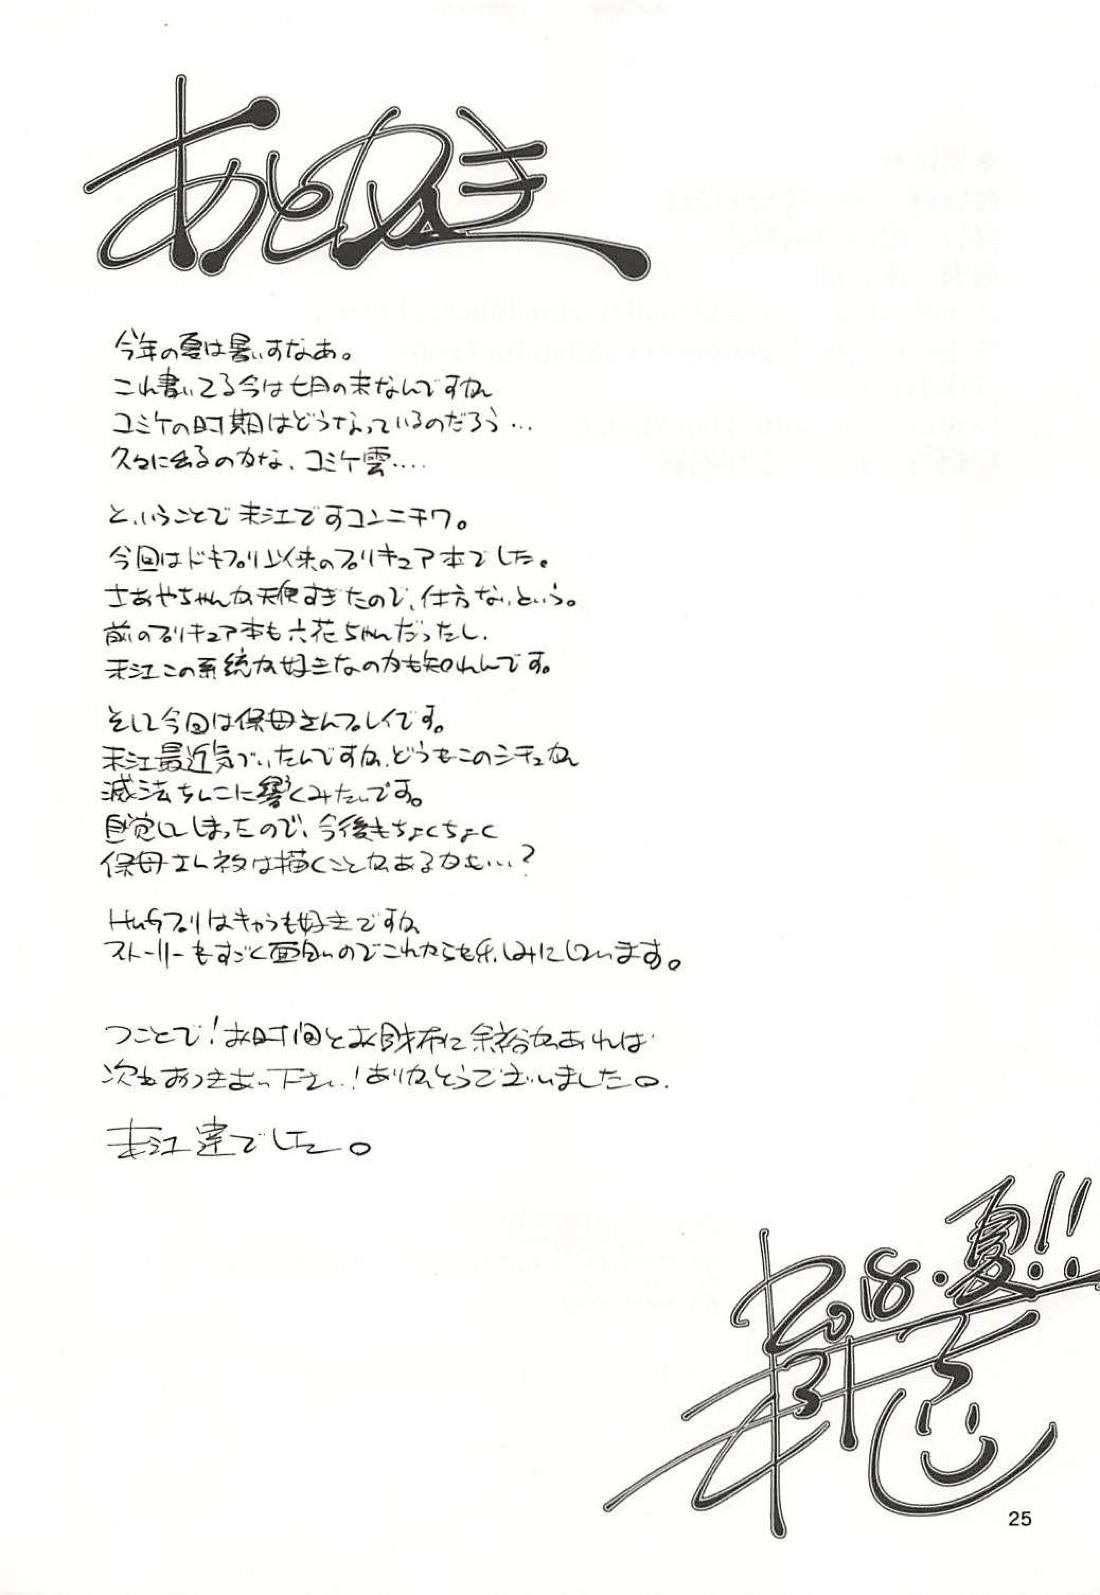 あとがき
今年の夏は暑いすなあ。
これ書いてる今は七月の末なんですが
コミケの时期はどうなっているのだろう…
久々に出るのかな、コミケ雲‥‥
と、いうことで末江ですコンニチワ。
今回はドキプリ以来のプリキュア本でした。
さあやちゃんが天使すぎたので、仕方ないという。
前のプリキュア本も六花ちゃんだったし、
末江この系統が好きなのかも知れんです。
そして今回は保母さんプレイです。
末江最近気づいたんですが、どうもこのシチュがん
滅法ちんこに響くみたいです。
自覚してしまったので、今後もちょくちょく
保母さんネタは描くことがあるかも…?
Hugプリはキャラも好きですが
ストーリーもすごく面白いのでこれからも楽しみにしています。
つことで!お时间とお財布に余裕があれば
次もおつきあい下さい!ありがとうございました。
末江達でした。
2018.夏!!
25